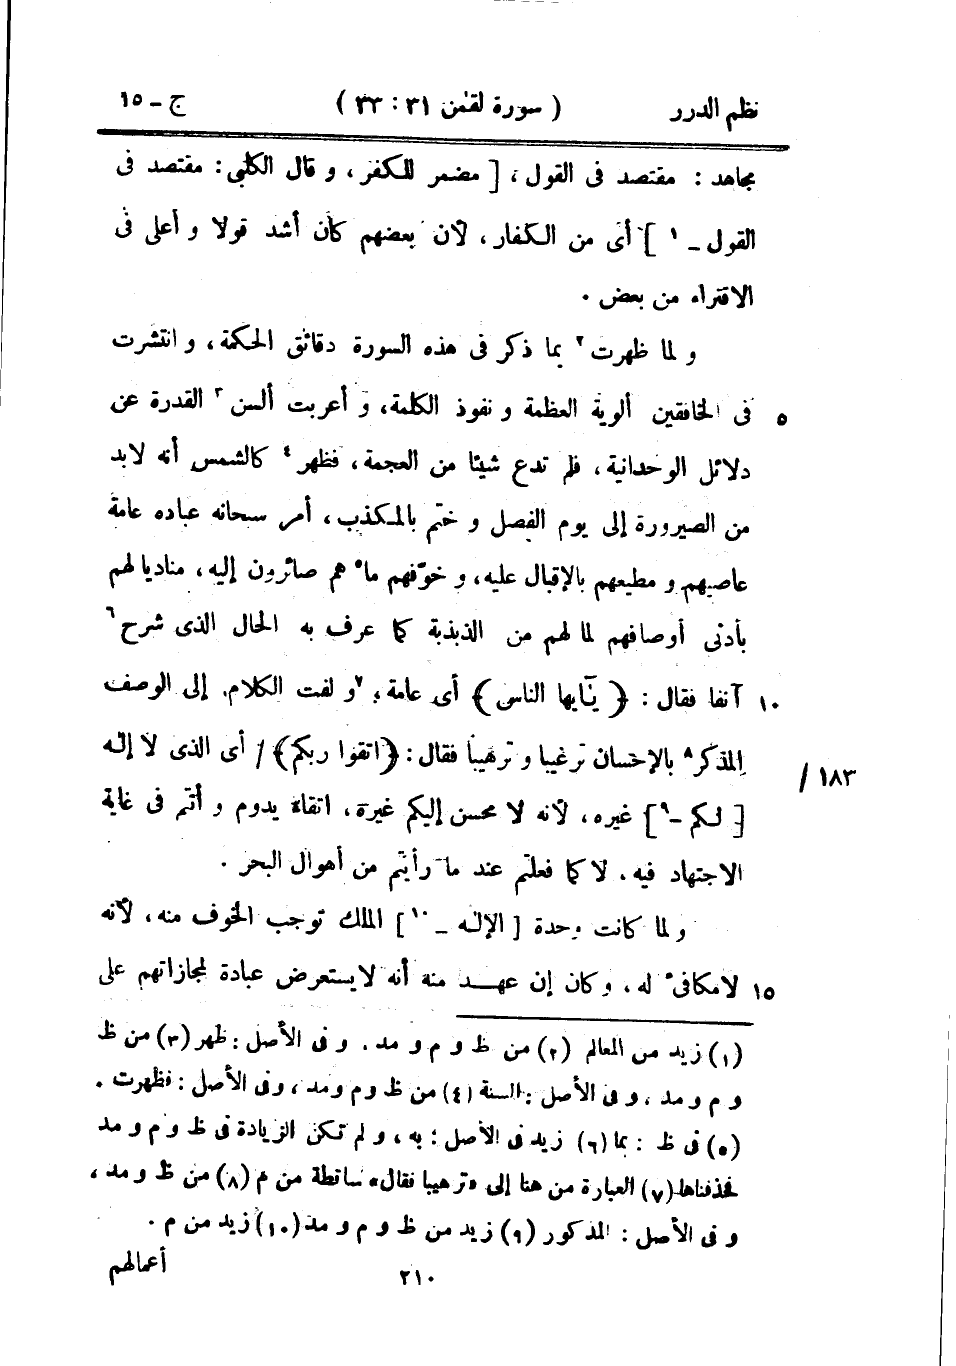 نظم الدرر ( سورة لقمٰن ٣١ : ٣٣ ) ج – ١٥
مجاهد : مقتصد فى القول ، [ مضمر للكفر ، و قال الكلبى : مقتصد فى
القول – ١ ] أى من الكفار ، لأن بعضهم كان أشد قولا و أعلى فى
الاقتراء من بعض .
و لما ظهرت ٢ بما ذكر فى هذه السورة دقائق الحكمة ، و انتشرت
٥ فى الخافقين ألوية العظمة و نفوذ الكلمة ، و أعربت ألسن ٣ القدرة عن
دلائل الوحدانية ، فلم تدع شيئا من العجمة ، فظهر ٤ كالشمس أنه لابد
من الصيرورة إلى يوم الفصل و ختم بالمكذب ، أمر سبحانه عباده عامة
عاصيهم و مطيعهم بالإقبال عليه ، و خوّفهم ما ٥ هم صائرون إليه ، مناديا لهم
بأدنى أوصافهم لما لهم من الذبذبة كما عرف به الحال الذى شرح ٦
١٠ آنفا فقال : ﴿ يٰٓايها الناس ﴾ أى عامة ، ٧ و لفت الكلام إلى الوصف
المذكر ٨ بالإحسان ترغيبا و ترهيبا فقال : ﴿ اتقوا ربكم ﴾ / أى الذى لا إلٰه
/ ١٨٣
[ لكم – ٩ ] غيره ، لأنه لا محسن إليكم غيره ، اتقاء يدوم و أنتم فى غاية
الاجتهاد فيه ، لا كما فعلتم عند ما رأيتم من أهوال البحر .
و لما كانت وحدة [ الإلٰه – ١٠ ] الملك توجب الخوف منه ، لأنه
١٥ لا مكافئ له ، و كان إن عهد منه أنه لا يستعرض عبادة لمجازاتهم على
(١) زيد من المعالم (٢) من ظ و م و مد ، و فى الأصل : ظهر (٣) من ظ
و م و مد ، و فى الأصل : السنة (٤) من ظ و م و مد ، و فى الأصل : فظهرت .
(٥) فى ظ : بما (٦) زيد فى الأصل : به ، و لم تكن الزيادة فى ظ و م و مد
فحذفناها (٧) العبارة من هنا إلى «ترهيبا فقال» ساقطة من م (٨) من ظ و مد ،
و فى الأصل : المذكور (٩) زيد من ظ و م و مد (١٠) زيد من م .
أعمالهم
٢١٠